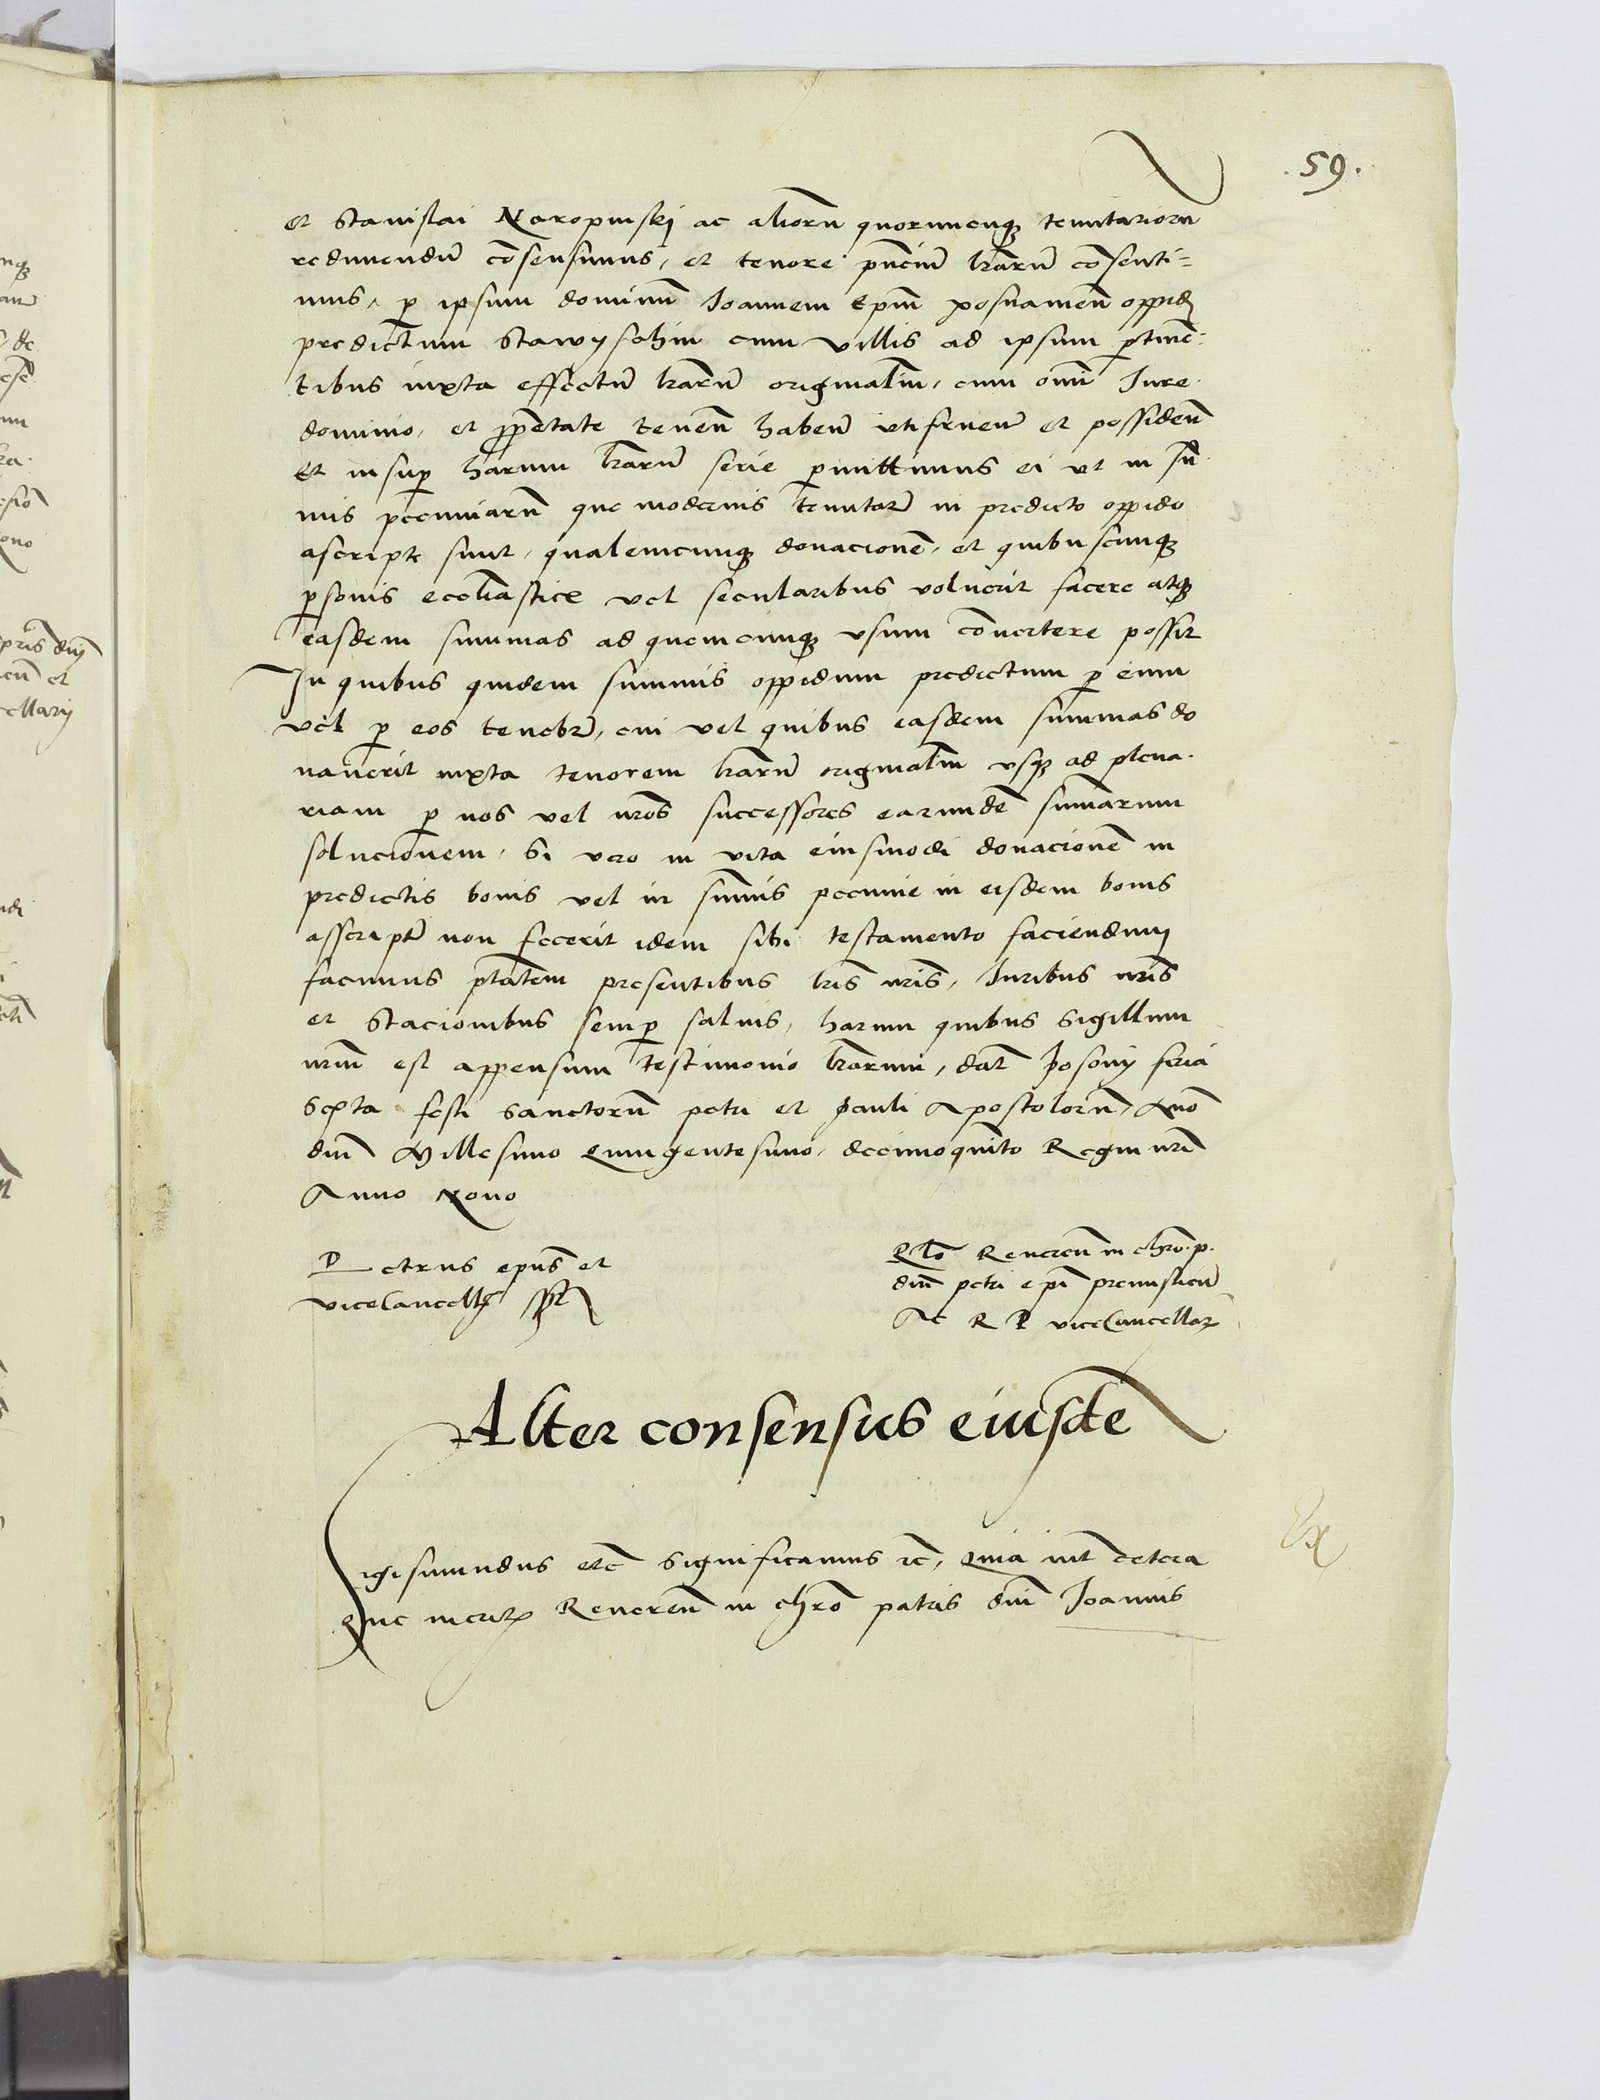 .59.
et Stanislai Naropinskj ac aliorũ quorumcunqꝫ tenutariorũ
redimendũ cõsensimus, et tenore pñciũ lrarũ cõsenti=
mus, ꝑ ipsum dominũ Joannem Epũm posnanieñ oppidũ
predictum Stawyschin cum villis ad ipsum ꝑtinẽ=
tibus iuxta effectũ lrarũ originaliũ, cum omi Jure
dominio, et ꝓprietate teneñ habeñ utifrueñ et possideñ
Et insuꝑ harum lrarũ serie ꝑmittimus ei ut in sũ
mis pecuniarũ que modernis tenutar̃ in predicto oppido
ascripte sunt, qualemcunqꝫ donacionẽ, et quibuscunqꝫ
ꝑsonis eccliastice vel secularibus voluerit facere atqꝫ
easdem summas ad quemcunqꝫ usum cõvertere possit
In quibus quidem summis oppidum predictum ꝑ eum
vel ꝑ eos tenebr̃, cui vel quibus easdem summas do
naverit iuxta tenorem lrarũ originaliũ usqꝫ ad plena
riam ꝑ nos vel nr̃os successores earundẽ summarum
solucionem, Si vero in vita eiusmodi donacionẽ in
predictis bonis vel in sum̃is pecunie in eisdem bonis
asscript̃ non fecerit idem sibi testamento faciendum
facimus ptãtem presentibus lr̃is nr̃is, Juribus nr̃is
et stacionibus semꝑ salvis, harum quibus Sigillum
nr̃m est appensum testimonio lrarum, dat̃ Posonij feria
Sexta festi Sanctorũ petri et Pauli Apostolorũ, Anõ
dnĩ Millesimo Quingentesimo, decimoquinto Regni nr̃i
Anno Nono
Petrus epũs et
viceCancellꝰ sst
Rlõ Reverenᵭ in chrõ. p.
dnĩ petri epĩ premislieñ
Ac R P viceCancellarꝫ
Alter consensus eiusdẽ
Sigismundus etc̃ Significamus ꝛc̃, Quia int̃ cetera
que meritꝫ Reverenᵭ in chrõ patris dnĩ Joannis
Ex